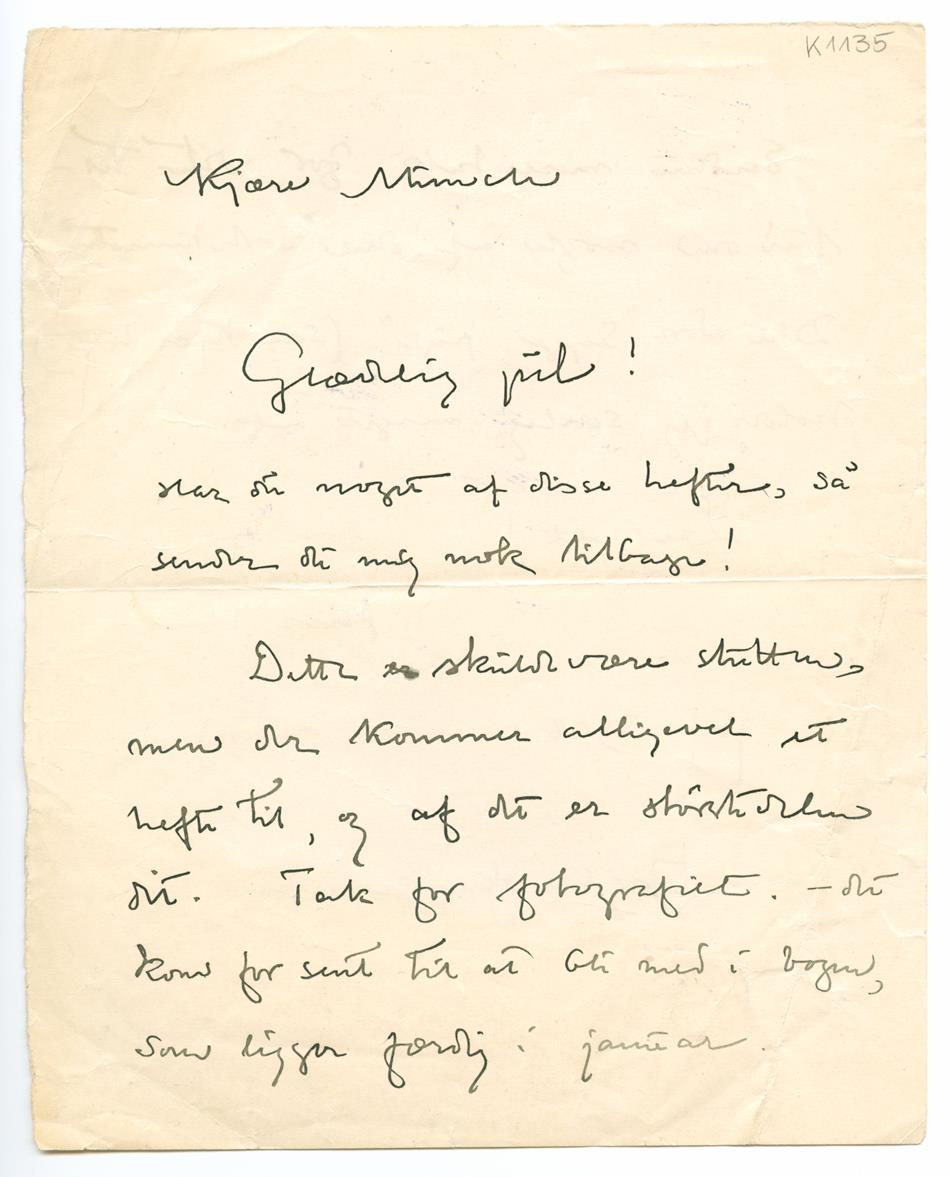 K1135
Kjære Munch
Glædelig jul!
Har du noget af disse hefter, så
sender du mig nok tilbage!
Dette er skulde være slutten,
men der kommer alligevel et
hefte til, og af det er størstedelen
dit. Tak for fotografiet. – det
kom for sent til at bli med i bogen,
som ligger færdig i januar.